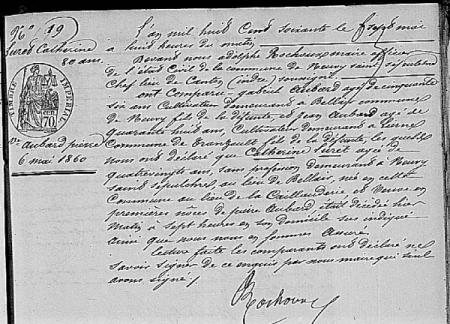 N° 19
Suret Catherine
80 ans.
TIMBRE IMPERIAL
70
Ve Aubard pierre
6 mai 1860
L'an mil huit Cent soixante le sept mai
à huit heures du matin
Devant nous adolphe Rochoux, maire officier
de l'état Civil de la commune de Neuvy saint sépulchre
Chef lieu de Canton (indre) soussigné
ont Comparu gabriel Aubard agé de cinquante
six ans Cultivateur Demeurant à Bellair commune
de Neuvy fils de la défunte, et Jean Aubard agé de
quarante huit ans, Cultivateur Demeurant à
Commune de fils de la défunte, les quels
nous ont déclaré que Catherine Suret agée de
quatrevingts ans, sans profession demeurant à Neuvy
saint sépulchre, au lieu de Bellair, née en cette
Commune au lieu de la Caillauderie et Veuve en
premières noces de pierre Aubard, était décédée hier
Matin à sept heures en son domicile sus indiqué
ainsi que nous nous en sommes Assuré
lecture faite les comparants ont déclaré ne
savoir signer de ce enquis par nous maire qui seul
avons signé
Rochoux